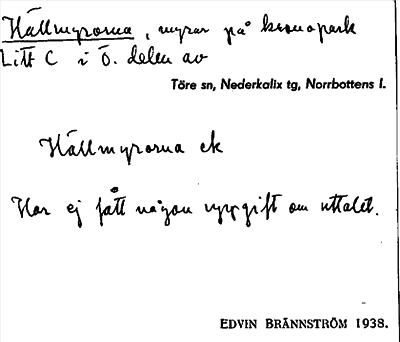 Hällmyrorna, myrar på kronopark
Litt C i ö. delen av
Töre sn, Nederkalix tg, Norrbottens l.
Hällmyrorna ek
Har ej fått någon uppgift om uttalet.
EDVIN BRÄNNSTRÖM 1938.